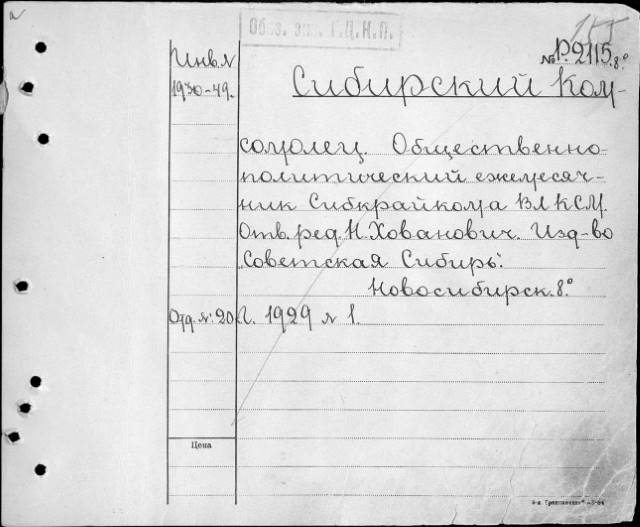 Обяз. экз. Г.Ц.К.П.
155
№ Р.2115 8°
Инв. №
1930-49.
Сибирский Ком-
сомолец. Общественно-
политический ежемесяч-
ник Сибкрайкома ВЛКСМ.
Отв. ред. Н. Хованович. Изд-во
„Советская Сибирь".
Новосибирск. 8°
Отд. №: 20
Г. 1929 № 1.
Цена